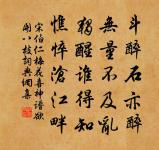 斗醉石亦醉
無量不及亂
獨醒誰得知
憔悴滄江畔
宋伯仁梅花喜神譜欲
開八枝詞典網集